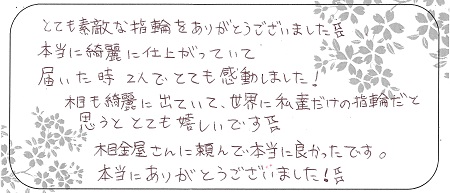 とても素敵な指輪をありがとうございました
本当に綺麗に仕上がっていて
届いた時 2人でとても感動しました!
相も綺麗に出ていて、世界に私達だけの指輪だと
思うと とても嬉しいです
相金屋さんに頼んで本当に良かったです。
本当にありがとうございました!